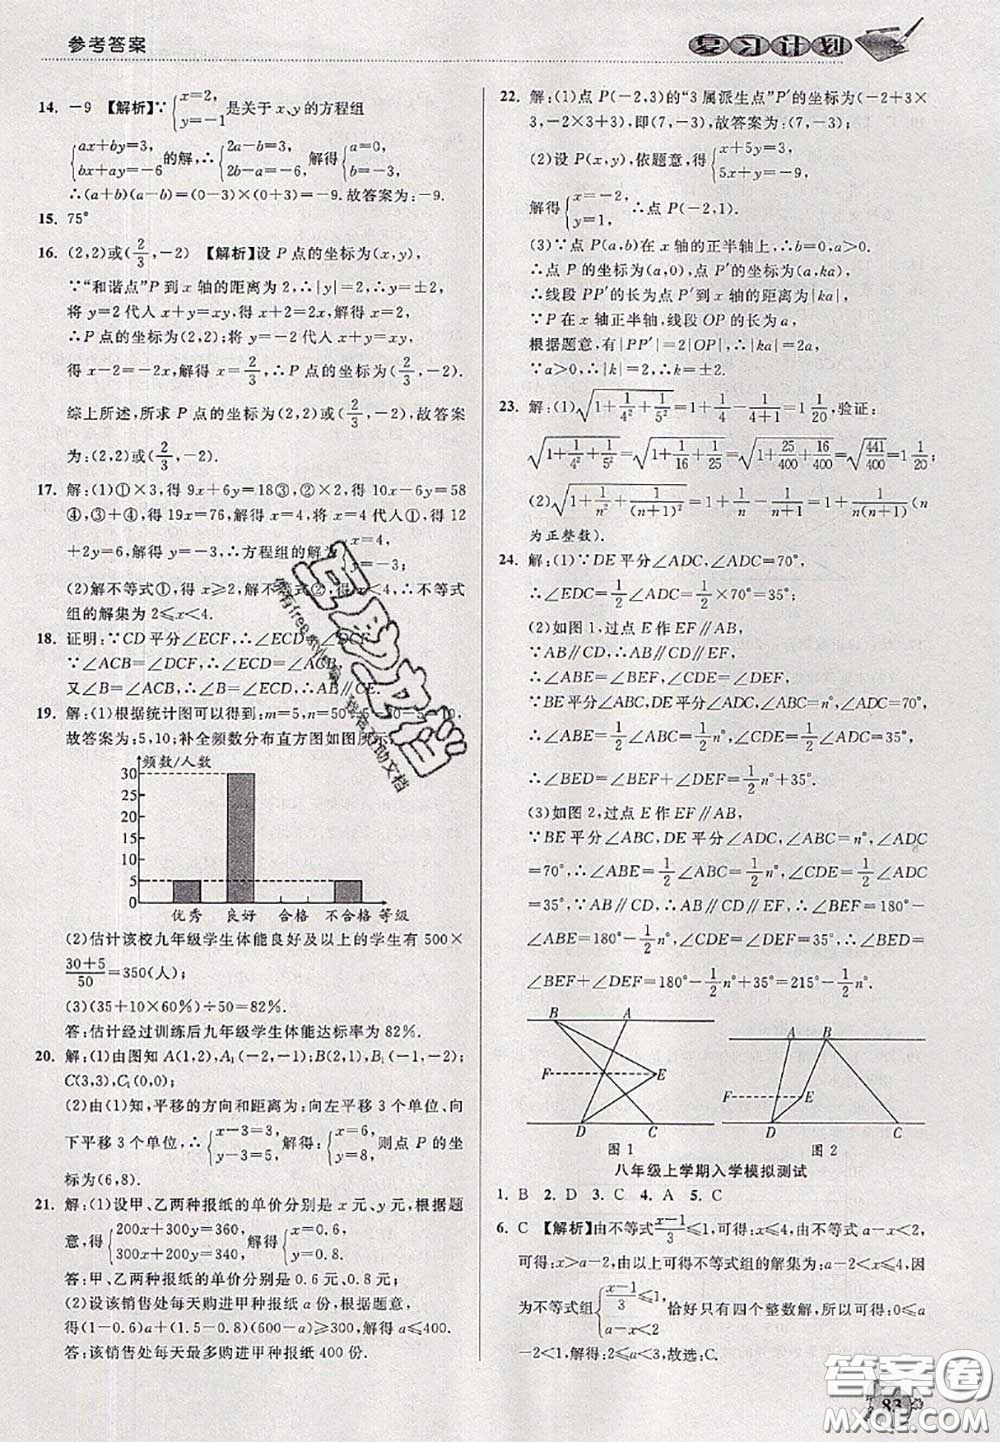 参考答案
14. －9 【解析】∵{x=2, y=-1 是关于 x,y 的方程组
{ax+by=3, bx+ay=-6 的解,∴{2a-b=3, 2b-a=-6, 解得{a=0, b=-3,
∴(a+b)(a-b)=(0-3)×(0+3)=-9.故答案为:-9.
15. 75°
16. (2,2)或(2/3,-2) 【解析】设 P 点的坐标为(x,y),
∵“和谐点”P 到 x 轴的距离为 2,∴|y|=2,∴y=±2.
将 y=2 代人 x+y=xy,得 x+2=2x,解得 x=2,
∴P 点的坐标为(2,2);将 y=-2 代人 x+y=xy,
得 x-2=-2x,解得 x=2/3,∴P 点的坐标为(2/3,-2).
综上所述,所求 P 点的坐标为(2,2)或(2/3,-2),故答案
为:(2,2)或(2/3,-2).
17. 解:(1)①×3,得 9x+6y=18③,②×2,得 10x-6y=58
④,③+④,得 19x=76,解得 x=4,将 x=4 代人①,得 12
+2y=6,解得 y=-3,∴方程组的解为{x=4, y=-3.
(2)解不等式①,得 x≥2,解不等式②,得 x<4,∴不等式
组的解集为 2≤x<4.
18. 证明:∵CD 平分∠ECF,∴∠ECD=∠DCF.
∵∠ACB=∠DCF,∴∠ECD=∠ACB.
又∠B=∠ACB,∴∠B=∠ECD,∴AB∥CE.
19. 解:(1)根据统计图可以得到:m=5,n=50-5-30-5=10,
故答案为:5,10;补全频数分布直方图如图所示.
频数/人数
30
25
20
15
10
5
0
优秀 良好 合格 不合格 等级
(2)估计该校九年级学生体能良好及以上的学生有 500×
(30+5)/50=350(人);
(3)(35+10×60%)÷50=82%.
答:估计经过训练后九年级学生体能达标率为 82%.
20. 解:(1)由图知 A(1,2),A₁(-2,-1);B(2,1),B₁(-1,-2);
C(3,3),C₁(0,0);
(2)由(1)知,平移的方向和距离为:向左平移 3 个单位、向
下平移 3 个单位,∴{x-3=3, y-3=5, 解得:{x=6, y=8, 则点 P 的坐
标为(6,8).
21. 解:(1)设甲、乙两种报纸的单价分别是 x 元、y 元,根据题
意,得{200x+300y=360, 300x+200y=340, 解得{x=0.6, y=0.8.
答:甲、乙两种报纸的单价分别是 0.6 元、0.8 元;
(2)设该销售处每天购进甲种报纸 a 份,根据题意,
得(1-0.6)a+(1.5-0.8)(600-a)≥300,解得 a≤400.
答:该销售处每天最多购进甲种报纸 400 份.
22. 解:(1)点 P(-2,3)的“3 属派生点”P′的坐标为(-2+3×
3,-2×3+3),即(7,-3),故答案为:(7,-3);
(2)设 P(x,y),依题意,得{x+5y=3, 5x+y=-9,
解得{x=-2, y=1, ∴点 P(-2,1).
(3)∵点 P(a,b)在 x 轴的正半轴上,∴b=0,a>0.
∴点 P 的坐标为(a,0),点 P′的坐标为(a,ka),
∴线段 PP′的长为点 P′到 x 轴距离为|ka|,
∵P 在 x 轴正半轴,线段 OP 的长为 a,
根据题意,有|PP′|=2|OP|,∴|ka|=2a,
∵a>0,∴|k|=2.从而 k=±2.
23. 解:(1)√(1+1/4²+1/5²)=1+1/4-1/(4+1)=1 1/20,验证:
√(1+1/4²+1/5²)=√(1+1/16+1/25)=√(1+25/400+16/400)=√(441/400)=1 1/20;
(2)√(1+1/n²+1/(n+1)²)=1+1/n-1/(n+1)=1+1/n(n+1)(n
为正整数).
24. 解:(1)∵DE 平分∠ADC,∠ADC=70°,
∴∠EDC=1/2∠ADC=1/2×70°=35°;
(2)如图 1,过点 E 作 EF∥AB,
∵AB∥CD,∴AB∥CD∥EF,
∴∠ABE=∠BEF,∠CDE=∠DEF.
∵BE 平分∠ABC,DE 平分∠ADC,∠ABC=n°,∠ADC=70°,
∴∠ABE=1/2∠ABC=1/2n°,∠CDE=1/2∠ADC=35°,
∴∠BED=∠BEF+∠DEF=1/2n°+35°.
(3)如图 2,过点 E 作 EF∥AB,
∵BE 平分∠ABC,DE 平分∠ADC,∠ABC=n°,∠ADC
=70°,∴∠ABE=1/2∠ABC=1/2n°,∠CDE=1/2∠ADC
=35°,∵AB∥CD,∴AB∥CD∥EF,∴∠BEF=180°-
∠ABE=180°-1/2n°,∠CDE=∠DEF=35°,∴∠BED=
∠BEF+∠DEF=180°-1/2n°+35°=215°-1/2n°.
B A
F E
D C
图 1
A B
F E
D C
图 2
八年级上学期入学模拟测试
1. B 2. D 3. C 4. A 5. C
6. C 【解析】由不等式(x-1)/3≤1,可得:x≤4,由不等式 a-x<2,
可得:x>a-2,由以上可得不等式组的解集为:a-2<x≤4,因
为不等式组{(x-1)/3≤1, a-x<2 恰好只有四个整数解,所以可得:0≤a
-2<1,解得:2≤a<3,故选:C.
83
答案圈
MXQE.COM